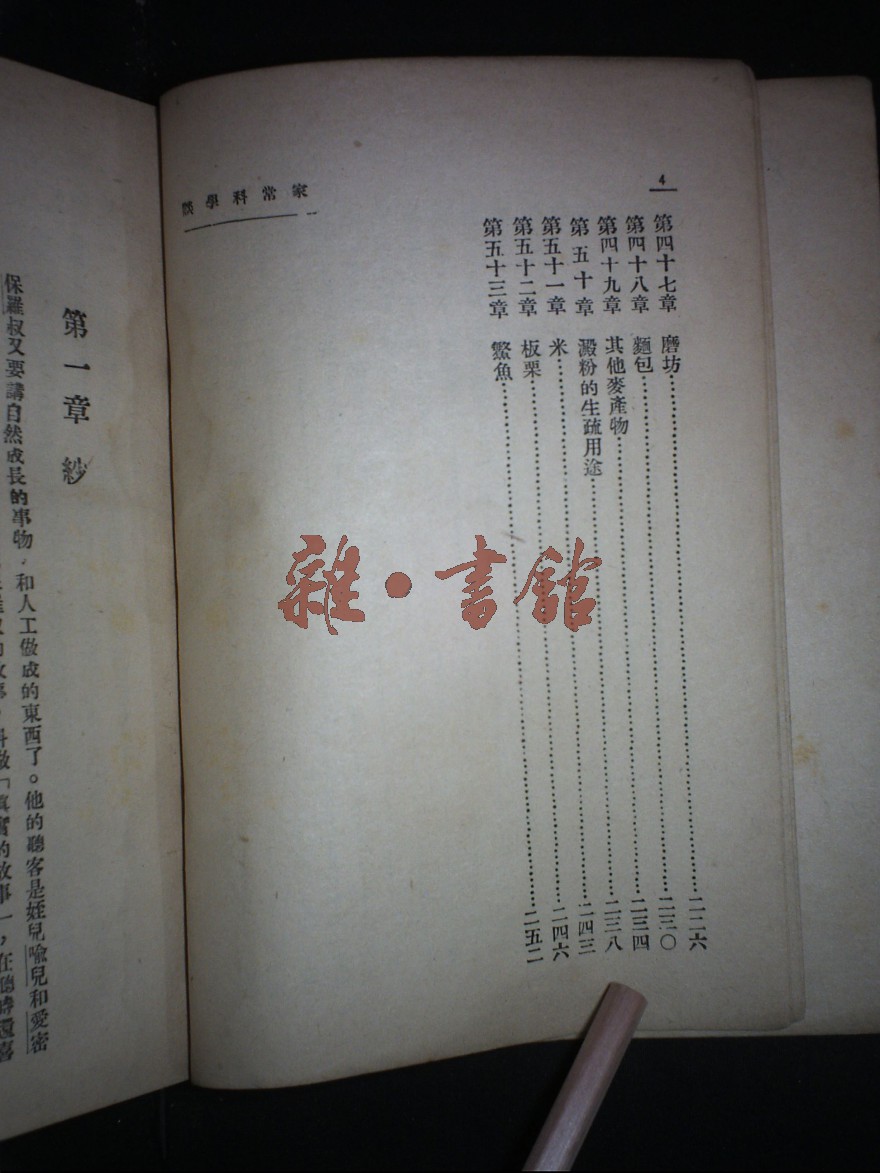 4
家常科學談
第四十七章 磨坊……二二六
第四十八章 麵包……二三〇
第四十九章 其他麥產物……二三四
第五十章 澱粉的生疏用途……二三八
第五十一章 米……二四三
第五十二章 板栗……二四六
第五十三章 鰵魚……二五二
第一章 紗
保羅叔又要講自然成長的事物，和人工做成的東西了。他的聽客是姪兒喻兒和愛密
叫做「真實的故事」，在聽時還喜
雜·書館